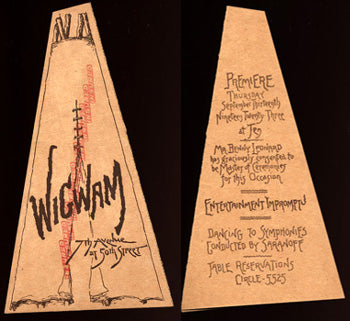 WIGWAM
7th Avenue
at 50th Street
PREMIERE
THURSDAY
September Thirteenth
Nineteen Twenty Three
at Ten
MR. BENNY LEONARD
has graciously consented to
be Master of Ceremonies
for this Occasion
ENTERTAINMENT IMPROMPTU
DANCING TO SYMPHONIES
CONDUCTED BY SARANOFF
TABLE RESERVATIONS
CIRCLE-5525